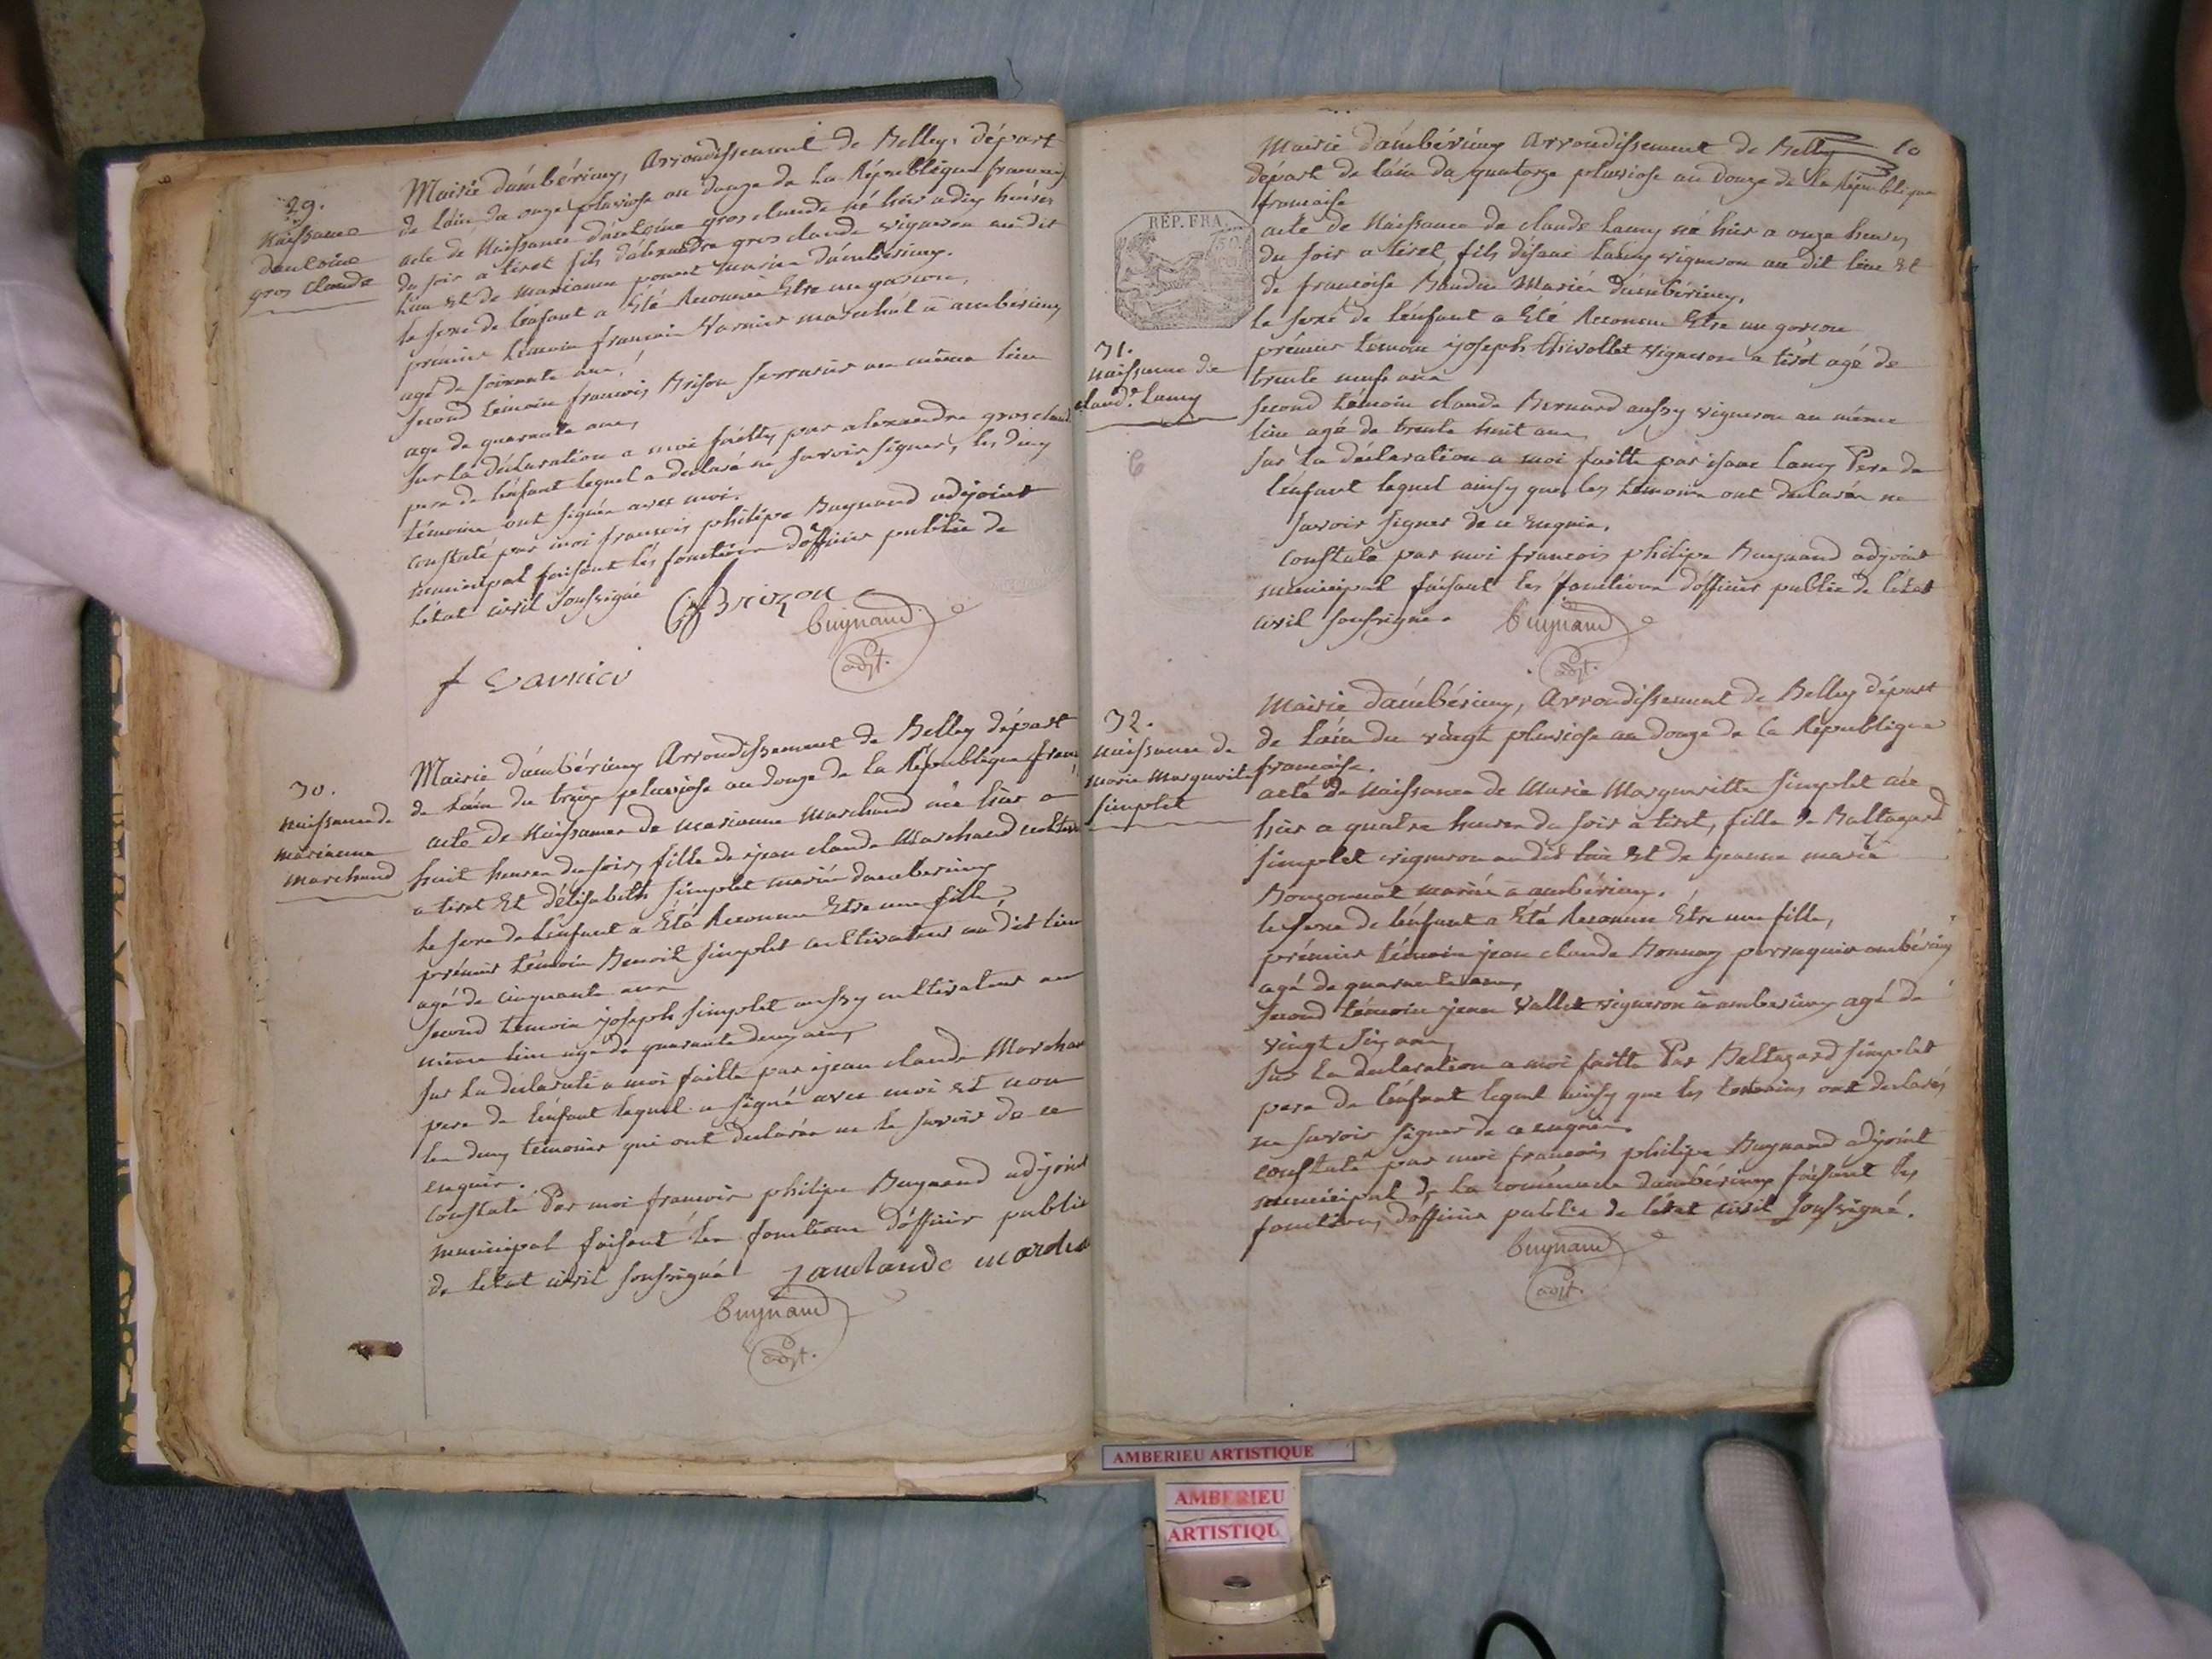 29.
Naissance
dantoine
gros Claude
Mairie dambérieuy, Arrondissement de Belley, départ
de Lain du onze pluviose an douze de La République francaise
acte de Naissance dantoine gros claude né hier a dix heures
du soir a tiret fils dalexandre gros claude vigneron au dit
lieu Et de marianne mariés dambérieuy.
le sexe de lénfant a Eté Reconnu Etre un garcon,
prémier témoin francois Varnier maréchal a ambérieuy
agé de soixante ans,
second témoin francois Brison serrurier au même lieu
age de quarante ans,
sur La déclaration a moi faitte par alexandre gros claude
pere de lénfant lequel a déclaré ne savoir signer, les deux
témoins ont signés avec moi.
Constaté par moi francois philipe Buynand adjoint
municipal faisant les fonctions dofficier public de
létat civil soussigné
Brizon
Buynand
adjt.
f varnier
30.
naissance de
marianne
marchand
Mairie dambérieuy Arrondissement de Belley départ
de Lain du treize pluviose an douze de la République franc
acte de Naissance de marianne marchand née hier a
huit heures du soir, fille de jean claude Marchand cultiv
a tiret Et délisabeth simplet mariés dambérieuy
le sexe de lénfant a Eté Reconnu Etre une fille,
prémier témoin Benoit simplet cultivateur au dit lieu
agé de cinquante ans
second témoin joseph simplet aussy cultivateur au
même lieu age de quarante deux ans,
sur La déclarati a moi faitte par jean claude Marchan
pere de lénfant lequel a signé avec moi Et non
les deux témoins qui ont déclarés ne le savoir de ce
enquis.
Constaté Par moi francois philipe Buynand adjoint
municipal faisant les fonctions dofficier public
de létat civil soussigné
janclaude marcha
Buynand
adjt.
10
Mairie dambérieuy Arrondissement de Belley
départ de Lain du quatorze pluviose an Douze de la République
francaise
RÉP. FRA.
31.
naissance de
claude Lamy
acte de Naissance de claude Lamy né hier a onze heures
du soir a tiret, fils disaac Lamy vigneron au dit lieu Et
de francoise Baudin Mariés dambérieuy,
le sexe de lénfant a Eté Reconnu Etre un garcon
prémier témoin joseph Chivollet vigneron a tiret agé de
trente neuf ans
second témoin claude Bernard aussy vigneron au même
lieu agé de trente huit ans,
sur La déclaration a moi faitte par isaac Lamy Pere de
lénfant lequel ainsy que les témoins ont déclarés ne
savoir signer de ce Enquis.
Constate par moi francois philipe Buynand adjoint
municipal faisant les fonctions dofficier public de létat
civil soussigné.
Buynand
adjt.
32.
naissance de
marie marguerite
simplet
Mairie dambérieuy, Arrondissement de Belley départ
de Lain du vingt pluviose an douze de la République
francaise.
acte de Naissance de Marie Margueritte simplet née
hier a quatre heures du soir a tiret, fille de Baltazard
simplet vigneron au dit lieu Et de jeanne marie
Bouzonnat mariés a ambérieuy.
le sexe de lénfant a Eté Reconnu Etre une fille,
prémier témoin jean claude Bonnay perruquier ambérieuy
agé de quarante ans,
second témoin jean Vallet vigneron a ambérieuy agé de
vingt six ans,
sur La déclaration a moi faitte Par Baltazard simplet
pere de lénfant lequel ainsy que les témoins ont déclarés
ne savoir signer de ce enquis.
Constaté par moi francois philipe Buynand adjoint
municipal de la commune dambérieuy faisant les
fonctions dofficier public de létat civil soussigné.
Buynand
adjt.
AMBERIEU ARTISTIQUE
AMBERIEU
ARTISTIQU